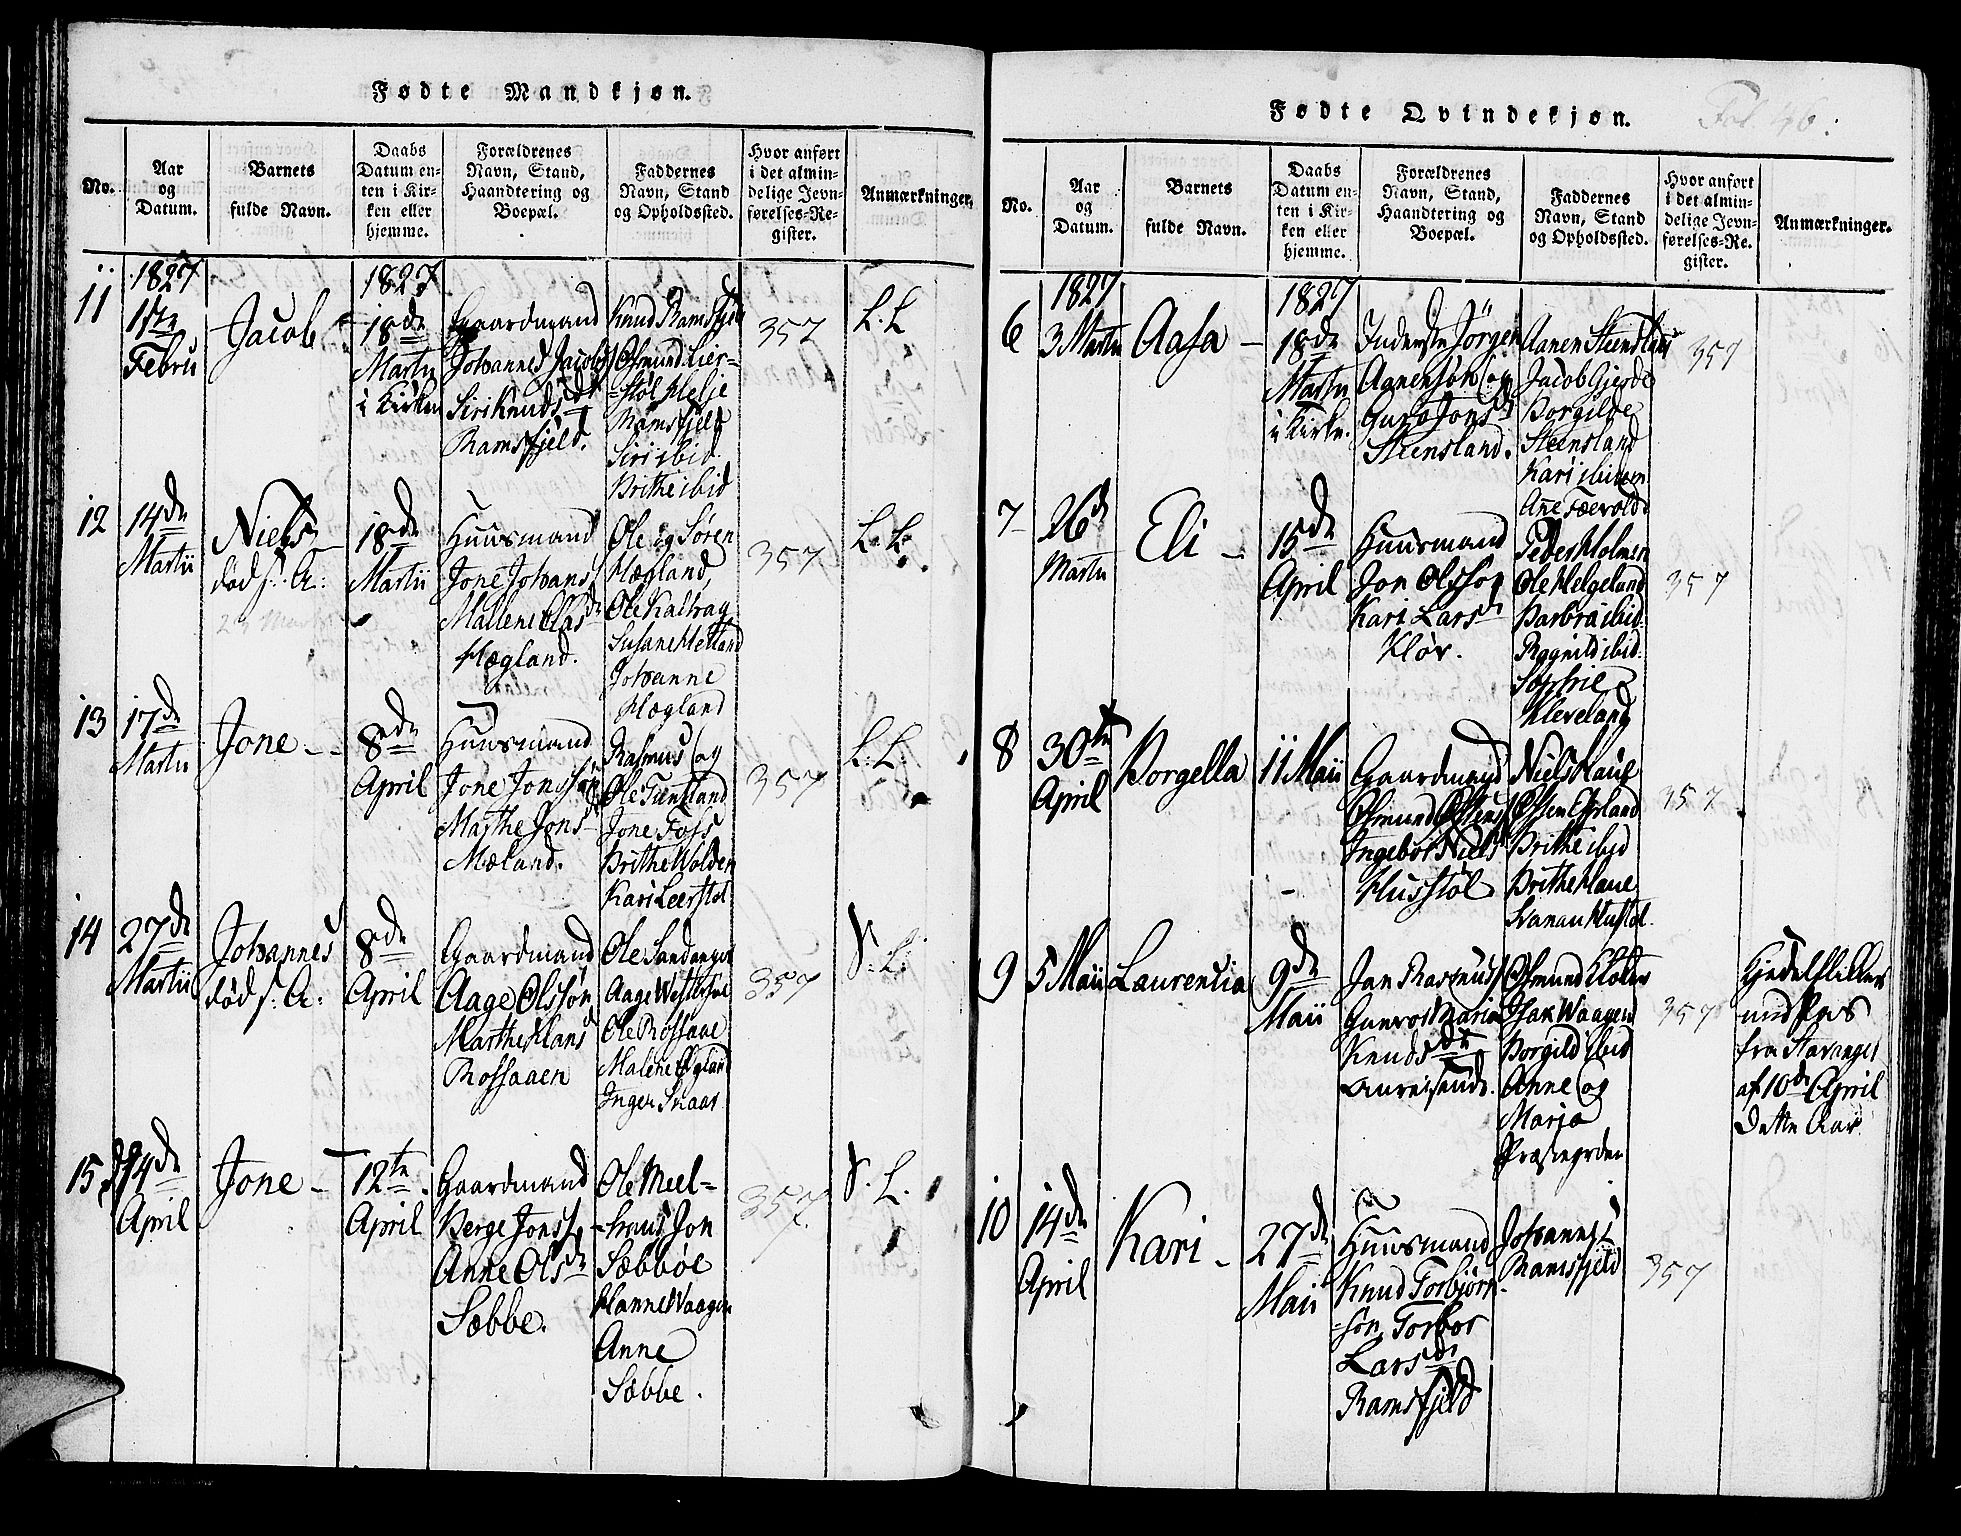 Fødte Mandkjøn.
No.
Aar
og
Datum.
Barnets
fulde Navn.
Daabs
Datum en-
ten i Kir-
ken eller
hjemme.
Forældrenes
Navn, Stand,
Haandtering og
Boepæl.
Faddernes
Navn, Stand
og Opholdssted.
Hvor anført
i det almin-
delige Jevn-
førelses-Re-
gister.
Anmærkninger.
11
1827
Febru
Jacob
1827
18de
Martii
i Kirken
Gaardmand
Johannes Jacobs
Siri Knudsdr
Ramsfjeld.
Knud Ramsfjeld
Osmund Lier-
støl Helje
Ramsfjeld
Siri ibid.
Brithe ibid
357
L. L
12
14de
Martii
Niels
død s. A:
23 Marti
18de
Martii
Huusmand
Jone Johans
Mallene Olsdr
Hægland.
Ole og Søren
Hægland,
Ole Kalhag
Susane Hetland
Johanne
Hægland
357
L. L.
13
17de
Martii
Jone
8de
April
Huusmand
Jone Jonssøn
Marthe Jons
Mæland.
Rasmus og
Ole Tiensland
Jone Foss
Brithe Wolden
Kari Leerstøl
357
L. L.
14
27de
Martii
Johannes
død s. A.
8de
April
Gaardmand
Aage Olssøn
Marthe Hans
Rossaaen
Ole Sandanger
Aage
Ole Rossaae
Malene
Inger Snaas
357
S. L.
15
4de
April
Jone
12te
April
Gaardmand
Berge Jonss
Anne Olsdr
Sæbbe.
Ole Meel-
hrais Jon
Sæbbøe
Hanne Waagen
Anne
Sæbbe.
357
S. L.
Fødte Qvindekjøn.
Fol. 46.
No.
Aar
og
Datum.
Barnets
fulde Navn.
Daabs
Datum en-
ten i Kir-
ken eller
hjemme.
Forældrenes
Navn, Stand,
Haandtering og
Boepæl.
Faddernes
Navn, Stand
og Opholdssted.
Hvor anført
i det almin-
delige Jevn-
førelses-Re-
gister.
Anmærkninger.
6
1827
3 Martii
Aasa
1827
18de
Martii
i Kirke.
Inderste Jørgen
Aanensøn og
Guro Jonsd
Steensland.
Aanen Steensland
Jacob Gjerde
Borgilde
Steensland
Kari ibidem
Ane Fæevold
357
7
26d
Martii
Eli
15de
April
Huusmand
Jon Olssøn
Kari Larsd
Kløv.
Peder Holmen
Ole Helgeland
Barbra ibid.
Ragnild ibid.
Sophie
Kleveland
357
8
30te
April
Borgella
11 Maii
Gaardmand
Osmund Østens
Ingebor Niels
Husstøl
Niels Haue
Østen Espland
Brithe ibid
Brithe Haue
Svanau Hustøl.
357
9
5 Maii
Laurentia
9de
Maii
Jan Rasmus
Gunvor Maria
Knudsdtr
Omreisende.
Osmund Kloster
Isak Waagen
Borgild ibid
Anne og
Maria
Præstegrden
357
Kjedelflikker
med Pas
fra Stavanger
af 10de April
Dette Aar
10
14de
April
Kari
27de
Maii
Huusmand
Knud Torbjørn-
søn Torbor
Larsdr
Ramsfjeld
Johannes
Ramsfjeld
357